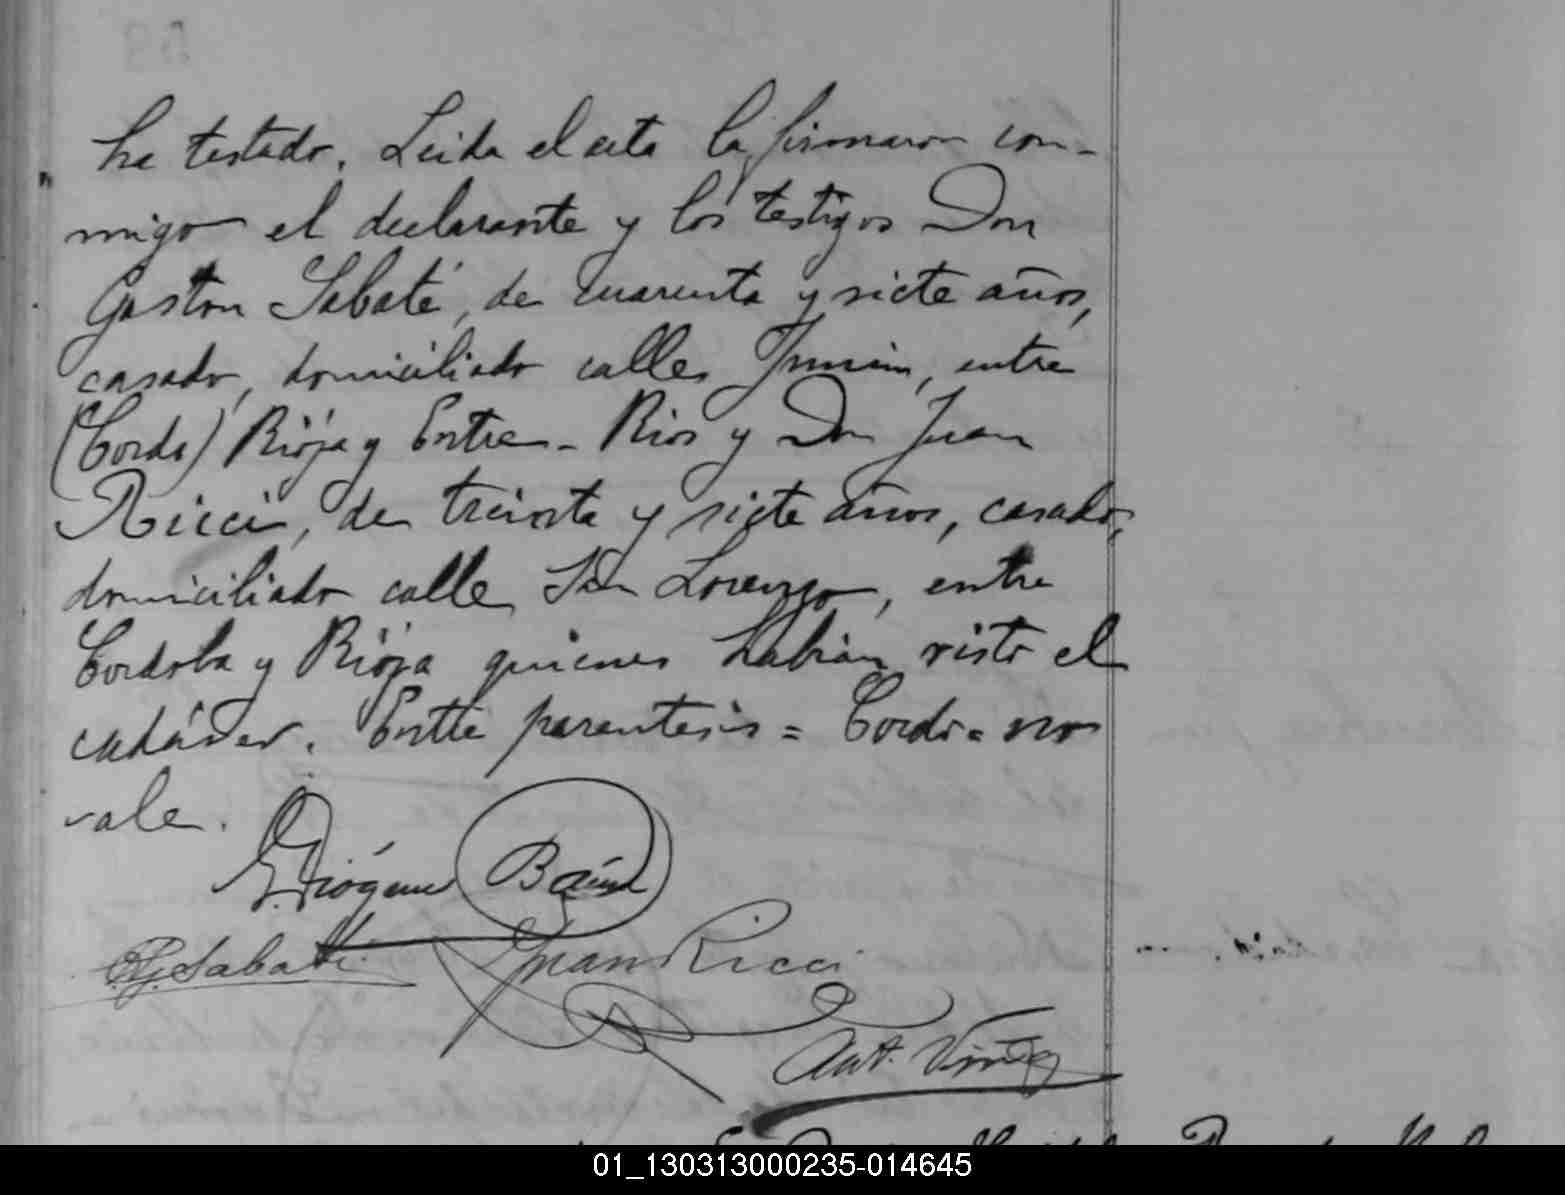 ha testado. Leida el acta la firmaron con-
migo el declarante y los testigos Don
Gaston Sabaté, de cuarenta y siete años,
casado, domiciliado calle Junin, entre
(Cordo) Rioja y Entre-Rios y Don Juan
Ricci, de treinta y siete años, casado,
domiciliado calle San Lorenzo, entre
Cordoba y Rioja quienes habian visto el
cadáver. Entre parentesis = Cordo = no
vale.
Diógenes
G. Sabaté
Juan Ricci
Ant.
01_130313000235-014645